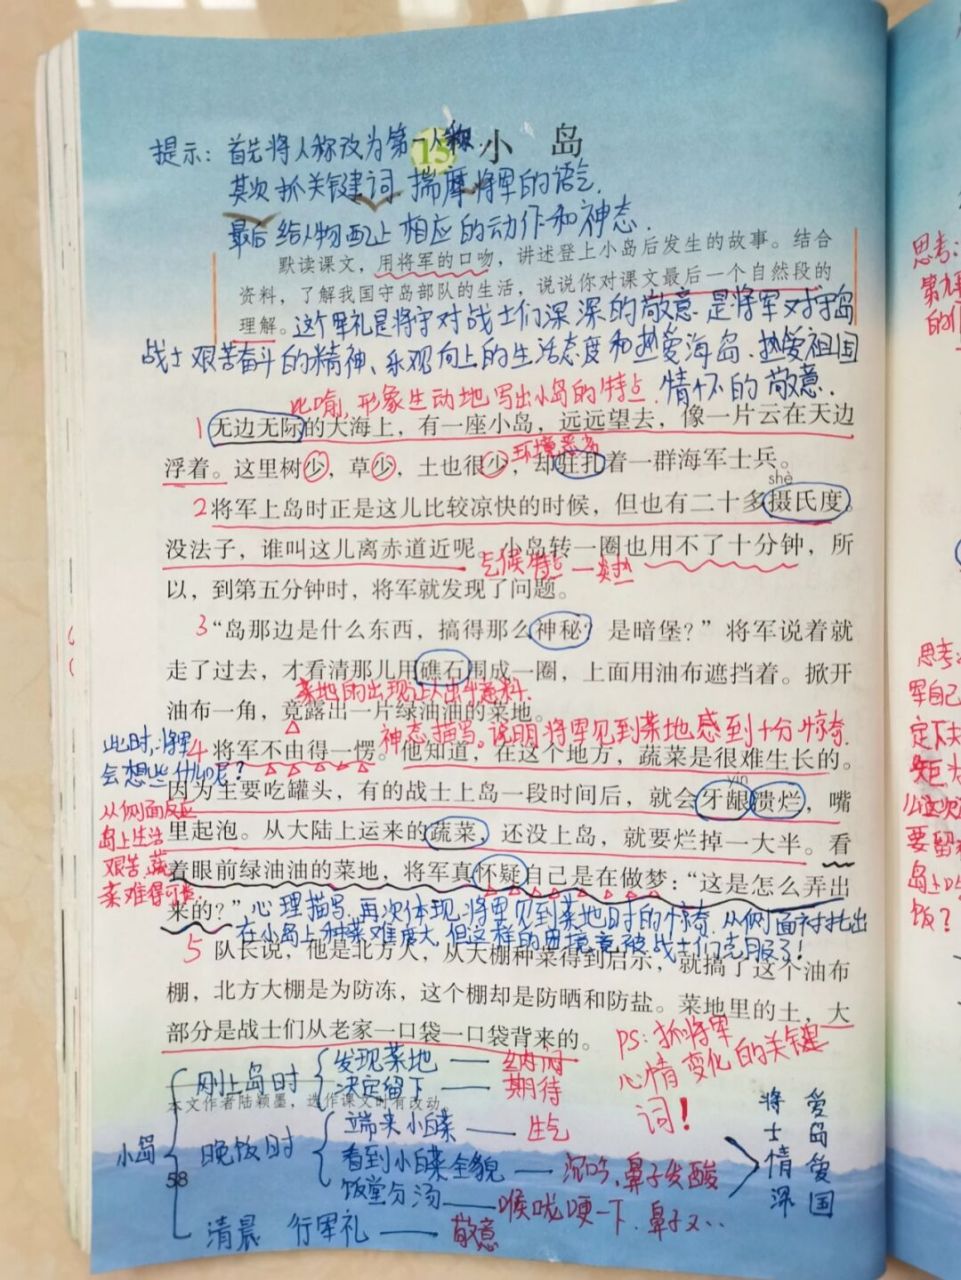 15 小 岛
提示：首先将人称改为第一人称.
其次抓关键词 揣摩将军的语气.
最后给人物配上相应的动作和神态.
默读课文，用将军的口吻，讲述登上小岛后发生的故事。结合
资料，了解我国守岛部队的生活，说说你对课文最后一个自然段的
理解。
这个军礼是将守对战士们深深的敬意.是将军对守岛
战士艰苦奋斗的精神、乐观向上的生活态度和热爱海岛、热爱祖国
情怀的敬意.
比喻，形象生动地写出小岛的特点.
1 无边无际的大海上，有一座小岛，远远望去，像一片云在天边
浮着。这里树少，草少，土也很少，却驻扎着一群海军士兵。
环境恶劣
shè
2 将军上岛时正是这儿比较凉快的时候，但也有二十多摄氏度。
没法子，谁叫这儿离赤道近呢。小岛转一圈也用不了十分钟，所
气候特点—炎热
以，到第五分钟时，将军就发现了问题。
3 “岛那边是什么东西，搞得那么神秘？是暗堡？”将军说着就
走了过去，才看清那儿用礁石围成一圈，上面用油布遮挡着。掀开
菜地的出现让人出乎意料.
油布一角，竟露出一片绿油油的菜地。
神态描写。说明将军见到菜地感到十分惊奇.
4 将军不由得一愣。他知道，在这个地方，蔬菜是很难生长的。
yín
因为主要吃罐头，有的战士上岛一段时间后，就会牙龈溃烂，嘴
里起泡。从大陆上运来的蔬菜，还没上岛，就要烂掉一大半。看
着眼前绿油油的菜地，将军真怀疑自己是在做梦：“这是怎么弄出
来的？”
心理描写.再次体现将军见到菜地时的惊奇.从侧面衬托出
在小岛上种菜难度大，但这样的困境竟被战士们克服了！
此时，将军
会想些什么呢？
从侧面反应
岛上生活
艰苦，蔬
菜难得可贵.
5 队长说，他是北方人，从大棚种菜得到启示，就搞了这个油布
棚，北方大棚是为防冻，这个棚却是防晒和防盐。菜地里的土，大
部分是战士们从老家一口袋一口袋背来的。
PS：抓将军
心情变化的关键
词！
本文作者陆颖墨，选作课文时有改动。
小岛
刚上岛时
发现菜地——纳闷
决定留下——期待
晚饭时
端来小白菜——生气
看到小白菜全貌——沉吟，鼻子发酸
饭堂分汤——喉咙哽一下，鼻子又…
清晨 行军礼——敬意
将士情深
爱岛爱国
58
思考：
第九
的们
思考：
军自己
定下
矩为
么这次
要留
岛上吃
饭？